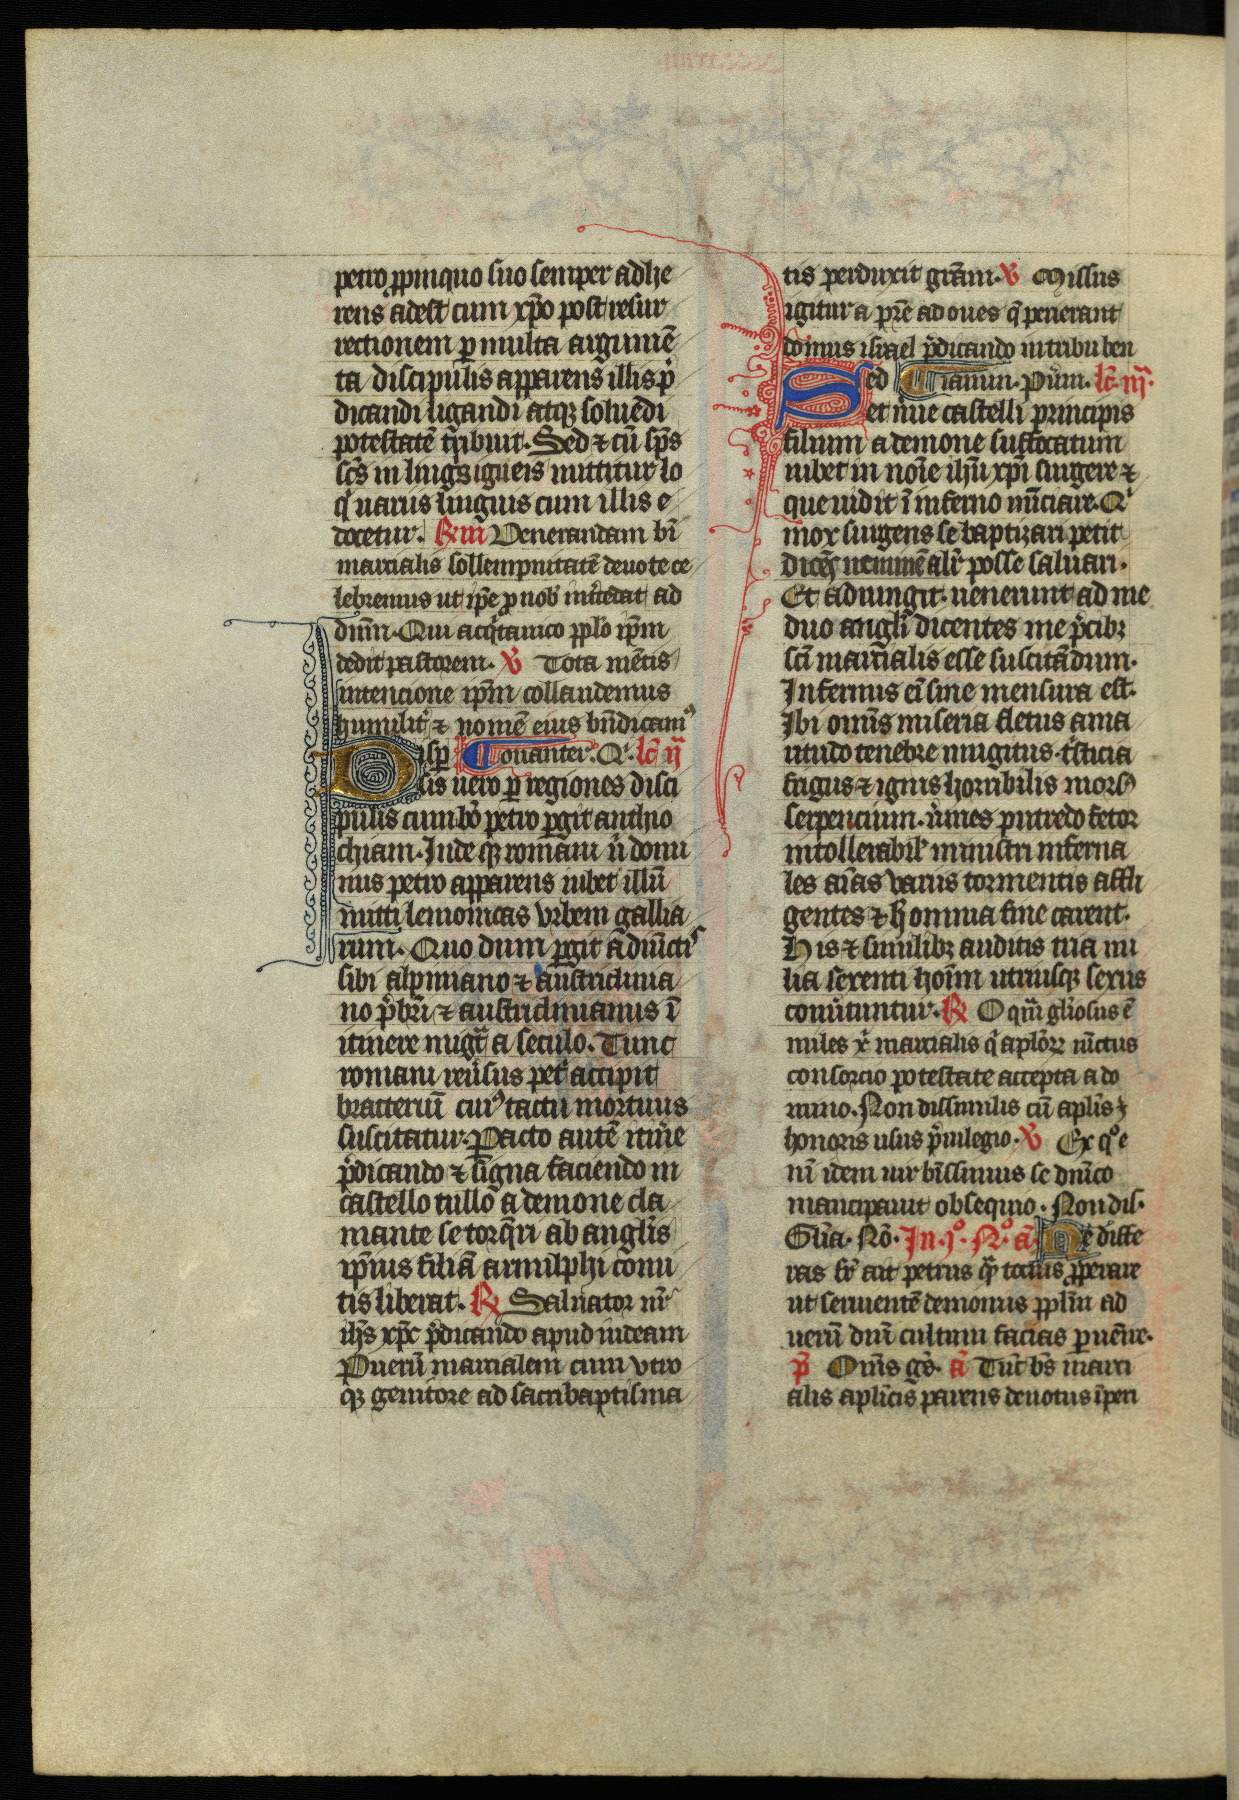 petro ꝓpinquo suo semper adhe
rens adest cum xp̄o post resur
rectionem ꝑ multa argumē
ta discipulis apparens illis p̄
dicandi ligandi atqꝫ soluēdi
potestatē tͥbuit. Sed ⁊ cū sp̄s
sc̄s in ligͣs igneis mittitur lo
qͥ uariis linguis cum illis e
docetur. ℟ iii Venerandam bt̄i
marcialis sollempnitatē deuote ce
lebremus ut ip̄e ꝓ nob̄ int̄cedat ad
dm̄. Qui acq̄tanico pplo ip̄m
dedit pastorem. ℣ Tota mētis
intencione ip̄m collaudemus
humilit̄ ⁊ nomē eius bn̄dicamꝰ
Disp Touanter. Qͥ. lc̄ ij
sis uero ꝑ regiones disci
pulis cum bō petro ꝑgit anthio
chiam. Inde qꝫ romam ū domi
nus petro apparens iubet illū
mitti lemouicas vrbem gallia
rum. Quo dum ꝑgit adiūctis
sibi alpiniano ⁊ austriclinia
no p̄brī ⁊ austriclinianus ī
itinere migͣt a seculo. Tunc
romam reūsus pet̄ accipit
bracteriū cuiꝰ tactu mortuus
suscitatur. Pacto autē itin̄e
p̄dicando ⁊ signa faciendo in
castello tullo a demone cla
mante se torq̄ri ab anglīs
ip̄ius filiā arnulphi comi
tis liberat. ℟ Saluator nr̄
ih̄s xp̄c p̄dicando apud iudeam
Puerū marcialem cum vtro
qꝫ genitore ad sacri baptisma
tis perduxit grām. ℣ Missus
igitur a pr̄e ad oues q̄ perierant
domus israel p̄dicando in tribu ben
Sed Ciamin. Pūm. lc̄ iij.
et mue castelli principis
filium a demone suffocatum
iubet in noīe ih̄u xp̄i surgere ⁊
que uidit ī inferno nūciare. Qͥ
mox surgens se baptizari petit
dicēs neminē alr̄ posse saluari.
Et adiungit. uenerunt ad me
duo anglī dicentes me p̄cibꝫ
sc̄i marcialis esse suscitādum.
Infernus eī sine mensura est.
Ibi om̄is miseria fletus ama
ritudo tenebre mugitus. tͥsticia
frigus ⁊ ignis horribilis morsꝰ
serpencium. ūmes putredo fetor
intollerabil̄ ministri inferna
les aīas variis tormentis affli
gentes ⁊ h̄ omnia fine carent.
Hiis ⁊ similibꝫ auditis tria mi
lia sexcenti hoīm utriusqꝫ sexus
conūtuntur. ℟ O q̄m glīosus ē
miles xͥ marcialis qͥ aplōrꝝ iūctus
consorcio potestate accepta a do
mino. Non dissimilis cū aplīs ⁊
honoris usus p̄uilegio. ℣ Ex qͦ e
nī idem uir bt̄issimus se dn̄ico
mancipauit obsequio. Non dis.
Glīa. Nō. In. jͦ. Nͦ. ā Ne diffe
ras fr̄ ait petrus qͣ tocius ꝓperare
ut seruientē demoniis pplm̄ ad
uerū dm̄ cultum facias ꝑuēire.
p̄ Om̄s gs̄. ā Tūc bs̄ marci
alis aplīcis parens deuotus īperi